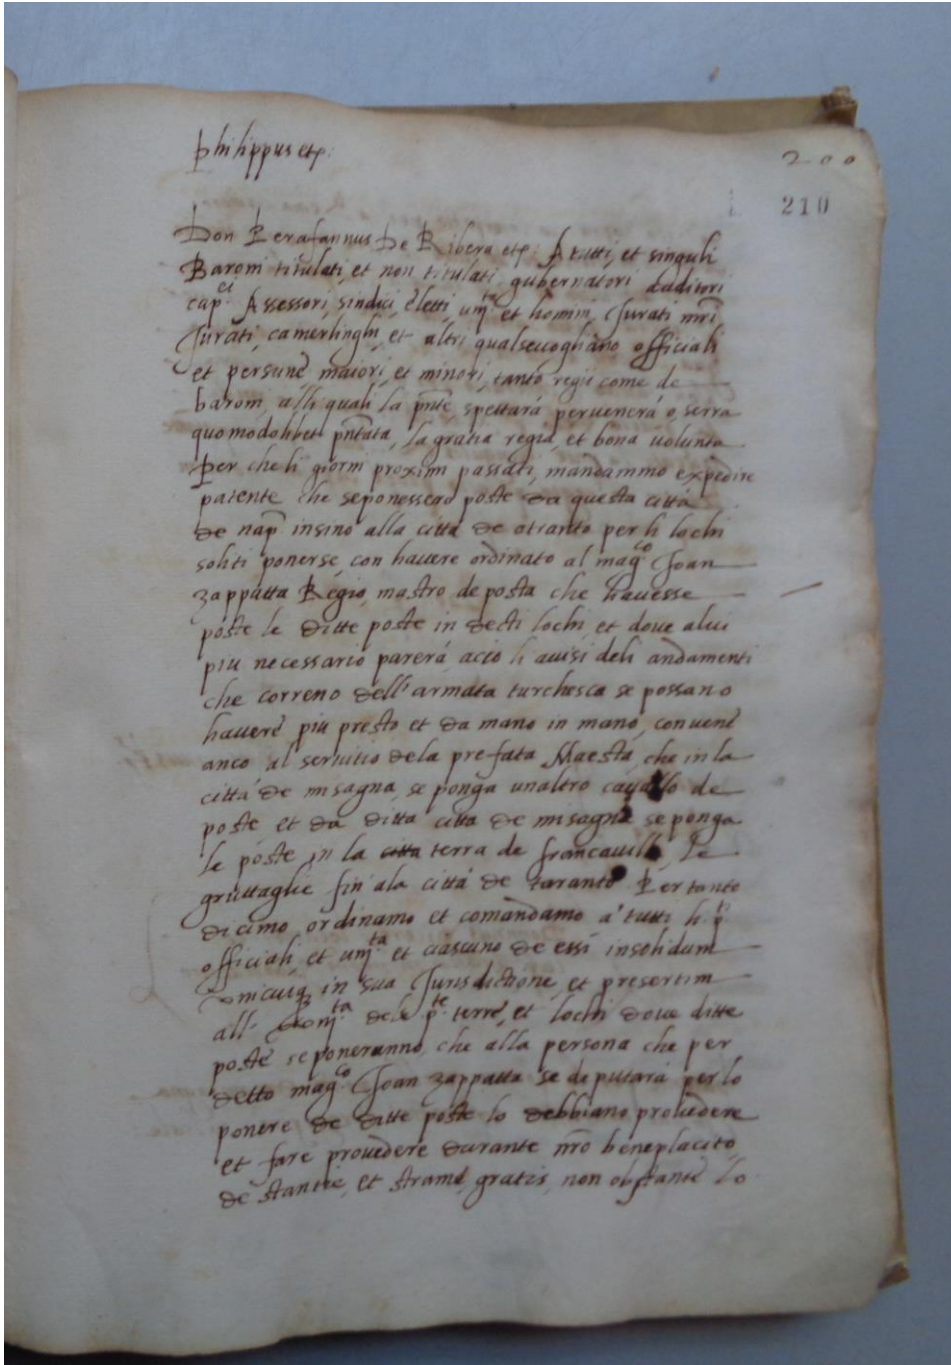 philippus etc:
200
210
Don Perafannus De Ribera etc: A tutti, et singuli
Baroni titulati, et non titulati, gubernatori Auditori
cap.ei Assessori, sindici, eletti, um.ta et homini, Jurati mri
Jurati, camerlinghi, et altri qualsevogliano officiali
et persune maiori, et minori, tanto regii come de
baroni, alli quali la pnte, spettarà pervenerà o, serra
quomodolibet pntata, la gratia regia, et bona volunta
Per che li giorni proximi passati, mandammo expedire
patente che se ponessero poste da questa città
de nap. insino alla città de otranto per li lochi
soliti ponerse, con havere ordinato al mag.co Joan
zappatta Regio, mastro de posta che havesse
poste le ditte poste in decti lochi, et dove alui
piu necessario parerà acio li avisi deli andamenti
che correno dell'armata turchesca se possano
havere piu presto et da mano in mano, convene
anco al servitio dela prefata Maestà, che in la
città de misagna, se ponga unaltro cavallo de
poste et da ditta citta de misagna se ponga
le poste in la citta terra de francavilla, le
gruttaglie fin'ala città de taranto Pertanto
dicimo, ordinamo et comandamo a' tutti li p.ti
officiali, et um.ta et ciascuno de essi insolidum
unicuiq. in sua Jurisdictione, et presertim
all' dele p.te terre, et lochi dove ditte
poste se poneranno, che alla persona che per
detto mag.co Joan zappatta se deputarà per lo
ponere de ditte poste lo debbiano provedere
et fare provedere durante nro beneplacito
de stantie, et strame, gratis, non obstante lo